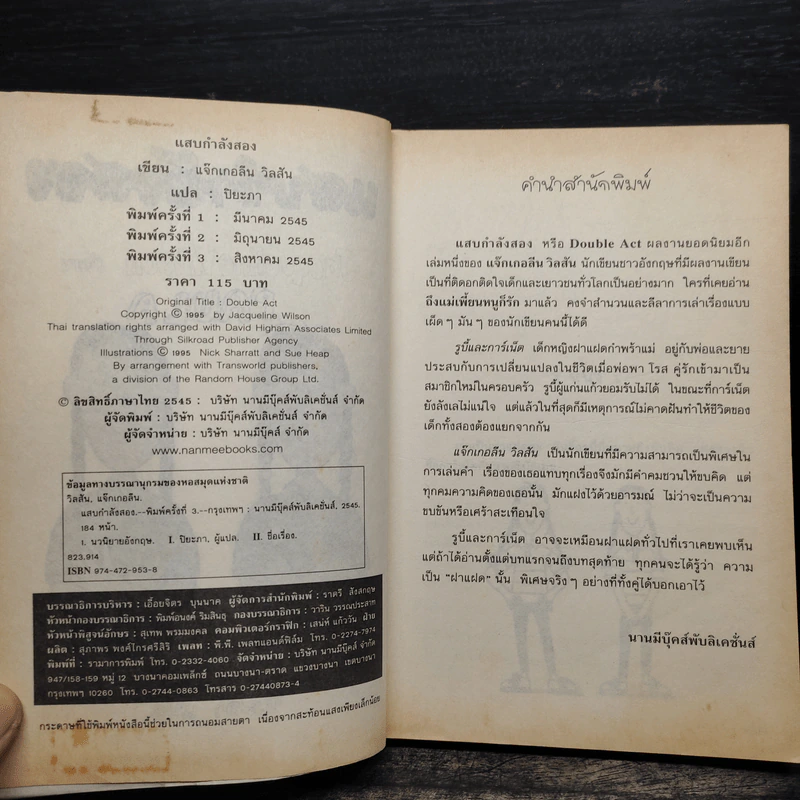 แสบกำลังสอง
เขียน : แจ๊กเกอลีน วิลสัน
แปล : ปิยะภา
พิมพ์ครั้งที่ 1 : มีนาคม 2545
พิมพ์ครั้งที่ 2 : มิถุนายน 2545
พิมพ์ครั้งที่ 3 : สิงหาคม 2545
ราคา 115 บาท
Original Title : Double Act
Copyright © 1995 by Jacqueline Wilson
Thai translation rights arranged with David Higham Associates Limited
Through Silkroad Publisher Agency
Illustrations © 1995 Nick Sharratt and Sue Heap
By arrangement with Transworld publishers,
a division of the Random House Group Ltd.
© ลิขสิทธิ์ภาษาไทย 2545 : บริษัท นานมีบุ๊คส์พับลิเคชั่นส์ จำกัด
ผู้จัดพิมพ์ : บริษัท นานมีบุ๊คส์พับลิเคชั่นส์ จำกัด
ผู้จัดจำหน่าย : บริษัท นานมีบุ๊คส์ จำกัด
www.nanmeebooks.com
ข้อมูลทางบรรณานุกรมของหอสมุดแห่งชาติ
วิลสัน, แจ๊กเกอลีน.
แสบกำลังสอง.--พิมพ์ครั้งที่ 3.--กรุงเทพฯ : นานมีบุ๊คส์พับลิเคชั่นส์, 2545.
184 หน้า.
1. นวนิยายอังกฤษ. I. ปิยะภา, ผู้แปล. II. ชื่อเรื่อง.
823.914
ISBN 974-472-953-8
บรรณาธิการบริหาร : เอื้อยจิตร บุนนาค ผู้จัดการสำนักพิมพ์ : ราตรี สังสกฤษ
หัวหน้ากองบรรณาธิการ : พิมพ์อนงค์ ริมสินธุ กองบรรณาธิการ : วาริน วรรณประสาท
หัวหน้าพิสูจน์อักษร : สุเทพ พรมมงคล คอมพิวเตอร์กราฟิก : เสน่ห์ แก้ววัน ฝ่าย
ผลิต : สุภาพร พงศ์ไกรศรีสิริ เพลท : พี.พี. เพลทแอนด์ฟิล์ม โทร. 0-2274-7974
พิมพ์ที่ : รามาการพิมพ์ โทร. 0-2332-4060 จัดจำหน่าย : บริษัท นานมีบุ๊คส์ จำกัด
947/158-159 หมู่ 12 บางนาคอมเพล็กซ์ ถนนบางนา-ตราด แขวงบางนา เขตบางนา
กรุงเทพฯ 10260 โทร. 0-2744-0863 โทรสาร 0-27440873-4
กระดาษที่ใช้พิมพ์หนังสือนี้ช่วยในการถนอมสายตา เนื่องจากสะท้อนแสงเพียงเล็กน้อย
คำนำสำนักพิมพ์
แสบกำลังสอง หรือ Double Act ผลงานยอดนิยมอีก
เล่มหนึ่งของ แจ๊กเกอลีน วิลสัน นักเขียนชาวอังกฤษที่มีผลงานเขียน
เป็นที่ติดอกติดใจเด็กและเยาวชนทั่วโลกเป็นอย่างมาก ใครที่เคยอ่าน
ถึงแม่เพี้ยนหนูก็รัก มาแล้ว คงจำสำนวนและลีลาการเล่าเรื่องแบบ
เผ็ดๆ มันๆ ของนักเขียนคนนี้ได้ดี
รูบี้และการ์เน็ต เด็กหญิงฝาแฝดกำพร้าแม่ อยู่กับพ่อและยาย
ประสบกับการเปลี่ยนแปลงในชีวิตเมื่อพ่อพา โรส คู่รักเข้ามาเป็น
สมาชิกใหม่ในครอบครัว รูบี้ผู้แก่นแก้วยอมรับไม่ได้ ในขณะที่การ์เน็ต
ยังลังเลไม่แน่ใจ แต่แล้วในที่สุดก็มีเหตุการณ์ไม่คาดฝันทำให้ชีวิตของ
เด็กทั้งสองต้องแยกจากกัน
แจ๊กเกอลีน วิลสัน เป็นนักเขียนที่มีความสามารถเป็นพิเศษใน
การเล่นคำ เรื่องของเธอแทบทุกเรื่องจึงมักมีคำคมชวนให้ขบคิด แต่
ทุกคมความคิดของเธอนั้น มักแฝงไว้ด้วยอารมณ์ ไม่ว่าจะเป็นความ
ขบขันหรือเศร้าสะเทือนใจ
รูบี้และการ์เน็ต อาจจะเหมือนฝาแฝดทั่วไปที่เราเคยพบเห็น
แต่ถ้าได้อ่านตั้งแต่บทแรกจนถึงบทสุดท้าย ทุกคนจะได้รู้ว่า ความ
เป็น "ฝาแฝด" นั้น พิเศษจริงๆ อย่างที่ทั้งคู่ได้บอกเอาไว้
นานมีบุ๊คส์พับลิเคชั่นส์